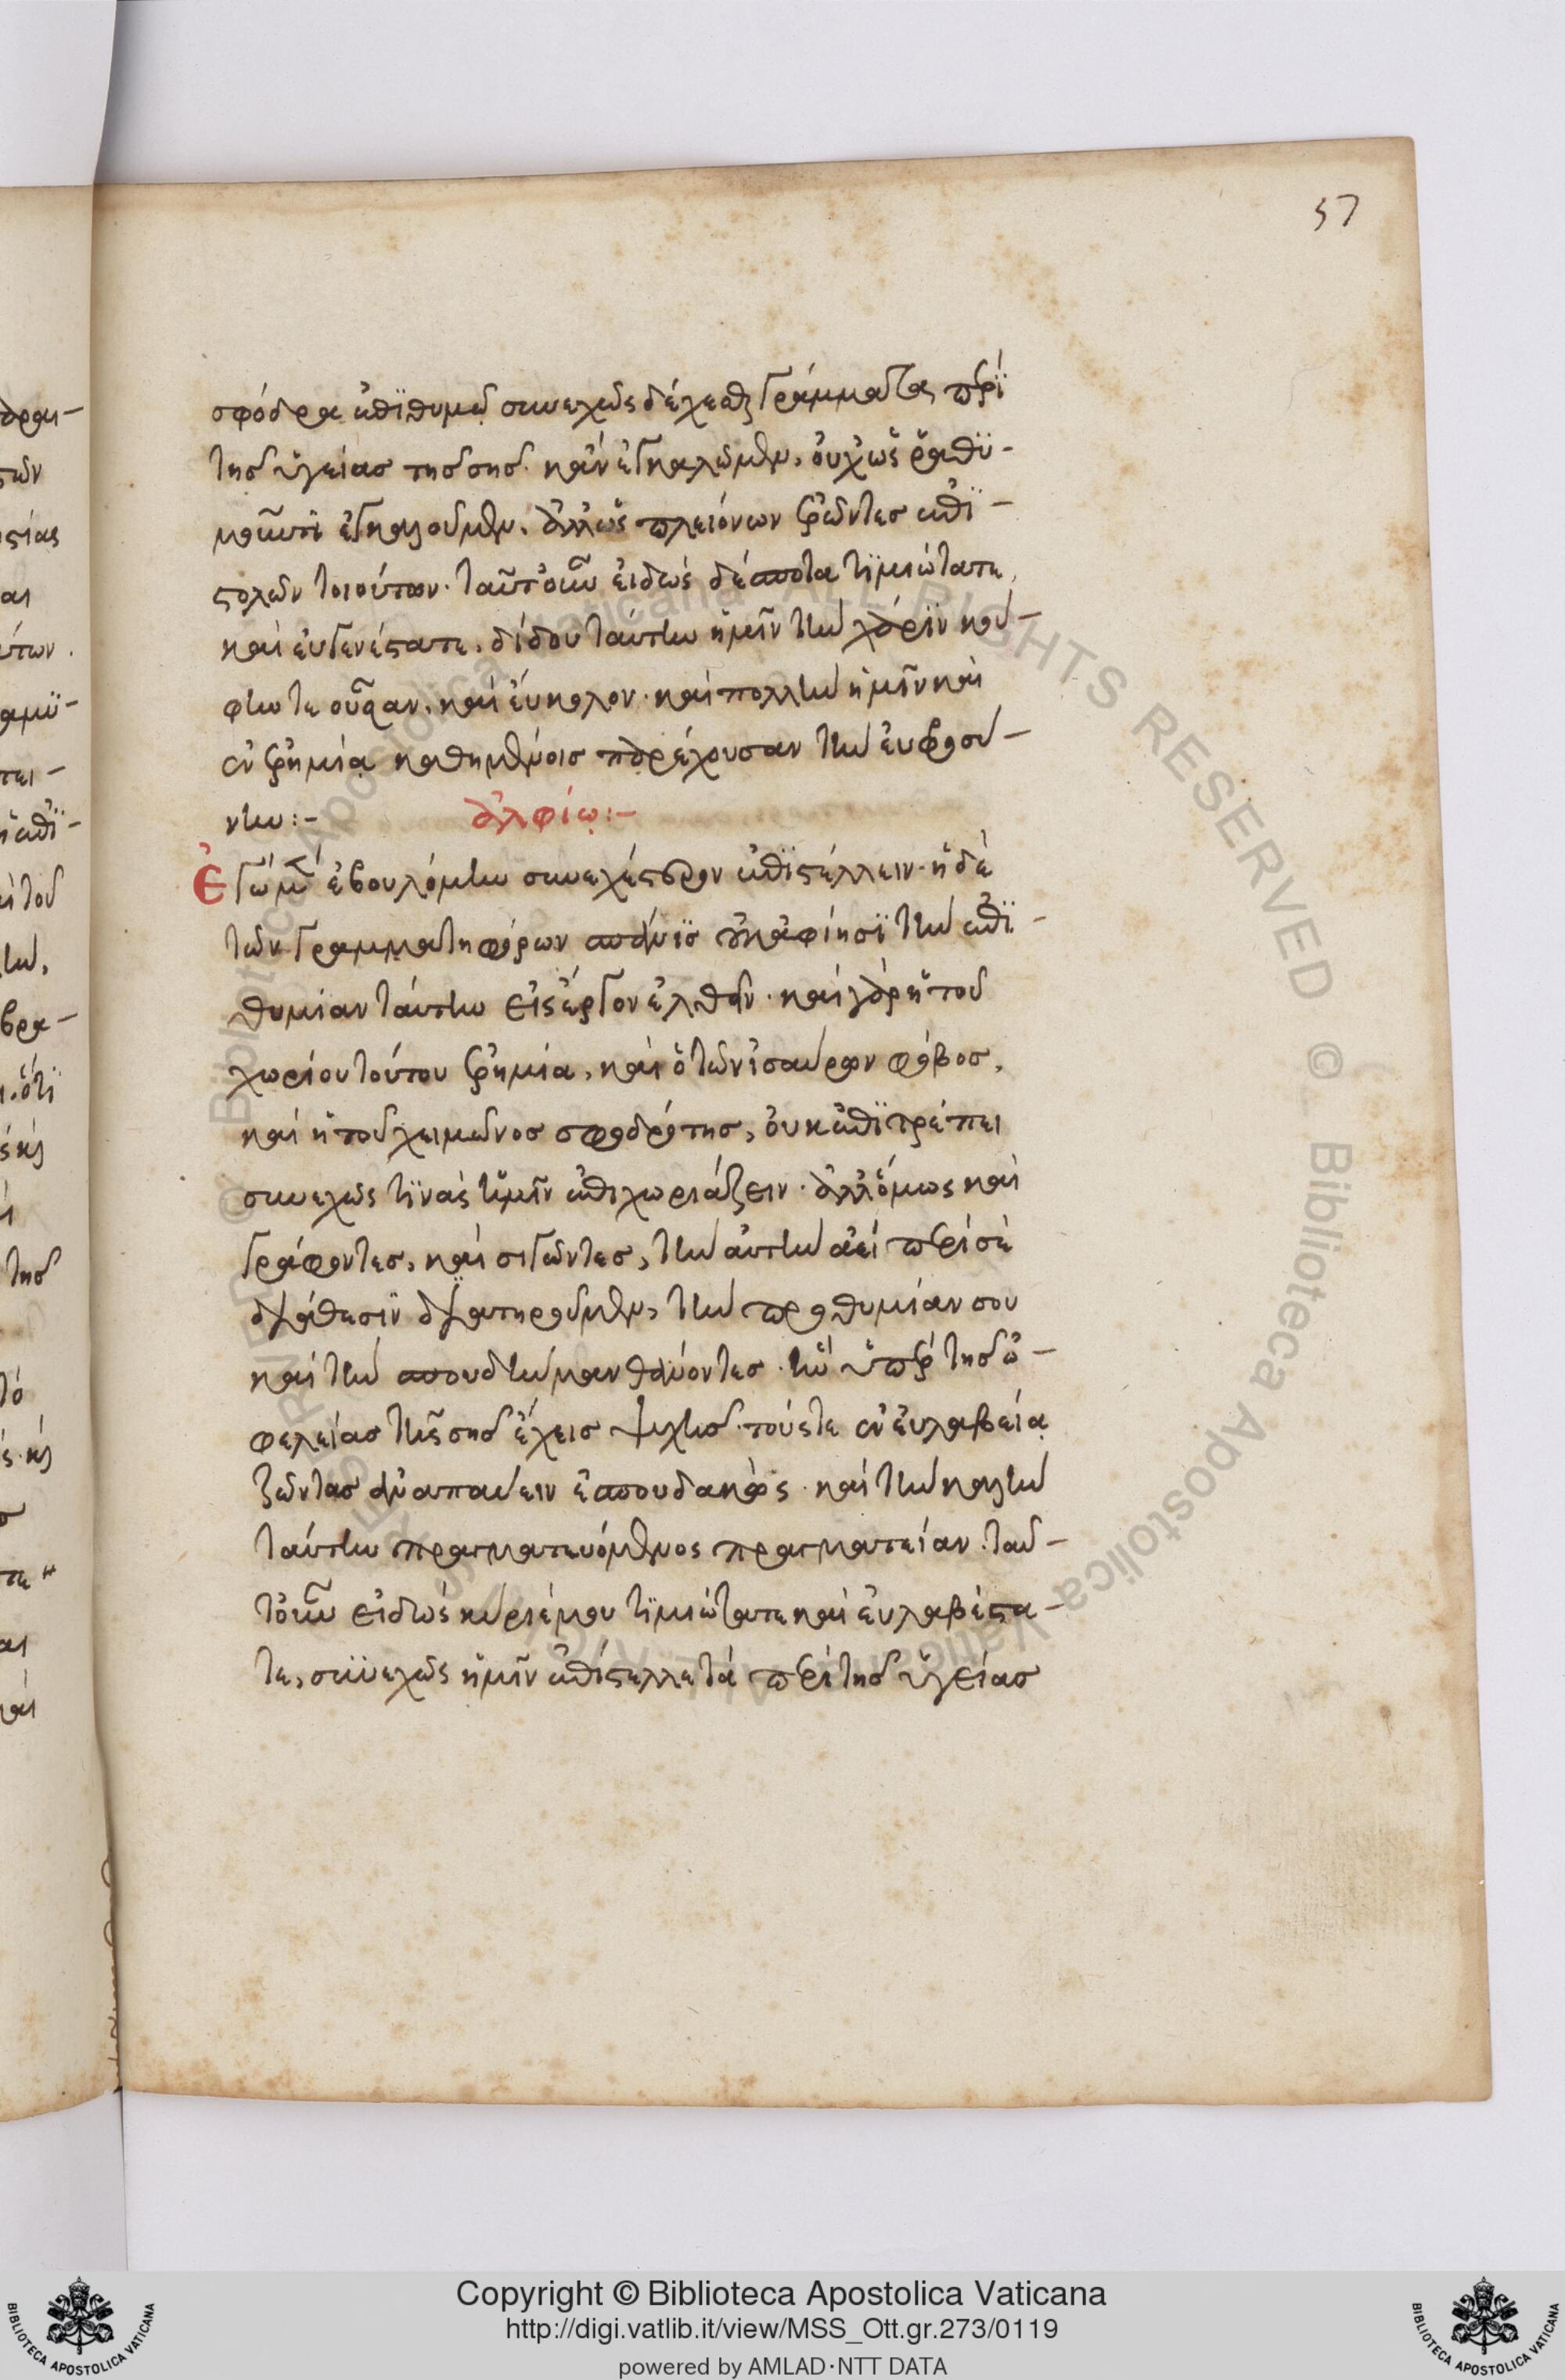 57
σφόδρα ἐπϊθυμῶ συνεχῶς δέχεσθαι γράμματα, περὶ
τῆς ὑγείας τῆς σῆς. κἂν ἐγκαλῶμεν, οὐχ ὡς ῥαθυ-
μοῦντι ἐγκαλοῦμεν. ἀλλ' ὡς πλειόνων ἐρῶντες ἐπι-
στολῶν τοιούτων. ταῦτ' οὖν εἰδὼς δέσποτα τιμιώτατε,
καὶ εὐγενέστατε, δίδου ταύτην ἡμῖν τὴν χάριν κού-
φην τε οὖσαν, καὶ εὔκολον. καὶ πολλὴν ἡμῖν καὶ
ἐν ἐρημίᾳ καθημένοις παρέχουσαν τὴν εὐφροσύ-
νην:-
ἀλφίω:-
Ἐγὼ μὲν ἐβουλόμην συνεχέστερον ἐπιστέλλειν. ἡ δὲ
τῶν γραμματηφόρων σπάνις οὐκ ἀφίησι τὴν ἐπι-
θυμίαν ταύτην εἰς ἔργον ἐλθεῖν. καὶ γὰρ ἡ τοῦ
χωρίου τούτου ἐρημία, καὶ ὁ τῶν ἰσαύρων φόβος,
καὶ ἡ τοῦ χειμῶνος σφοδρότης, οὐκ ἐπιτρέπει
συνεχῶς τινὰς ἡμῖν ἐπιχωριάζειν. ἀλλ' ὅμως καὶ
γράφοντες, καὶ σιγῶντες, τὴν αὐτὴν ἀεὶ περὶ σὲ
διάθεσιν διατηροῦμεν, τὴν προθυμίαν σου
καὶ τὴν σπουδὴν μανθάνοντες. ἣν ὑπὲρ τῆς ὠ-
φελείας τῆς σῆς ἔχεις ψυχῆς. τούς τε ἐν εὐλαβείᾳ
ζῶντας ἀναπαύειν ἐσπουδακὼς. καὶ τὴν καλὴν
ταύτην πραγματευόμενος πραγματείαν. ταῦ-
τ' οὖν εἰδὼς κύριέ μου τιμιώτατε καὶ εὐλαβέστα-
τε, συνεχῶς ἡμῖν ἐπίστελλε τὰ περὶ τῆς ὑγείας
Copyright © Biblioteca Apostolica Vaticana
http://digi.vatlib.it/view/MSS_Ott.gr.273/0119
powered by AMLAD·NTT DATA